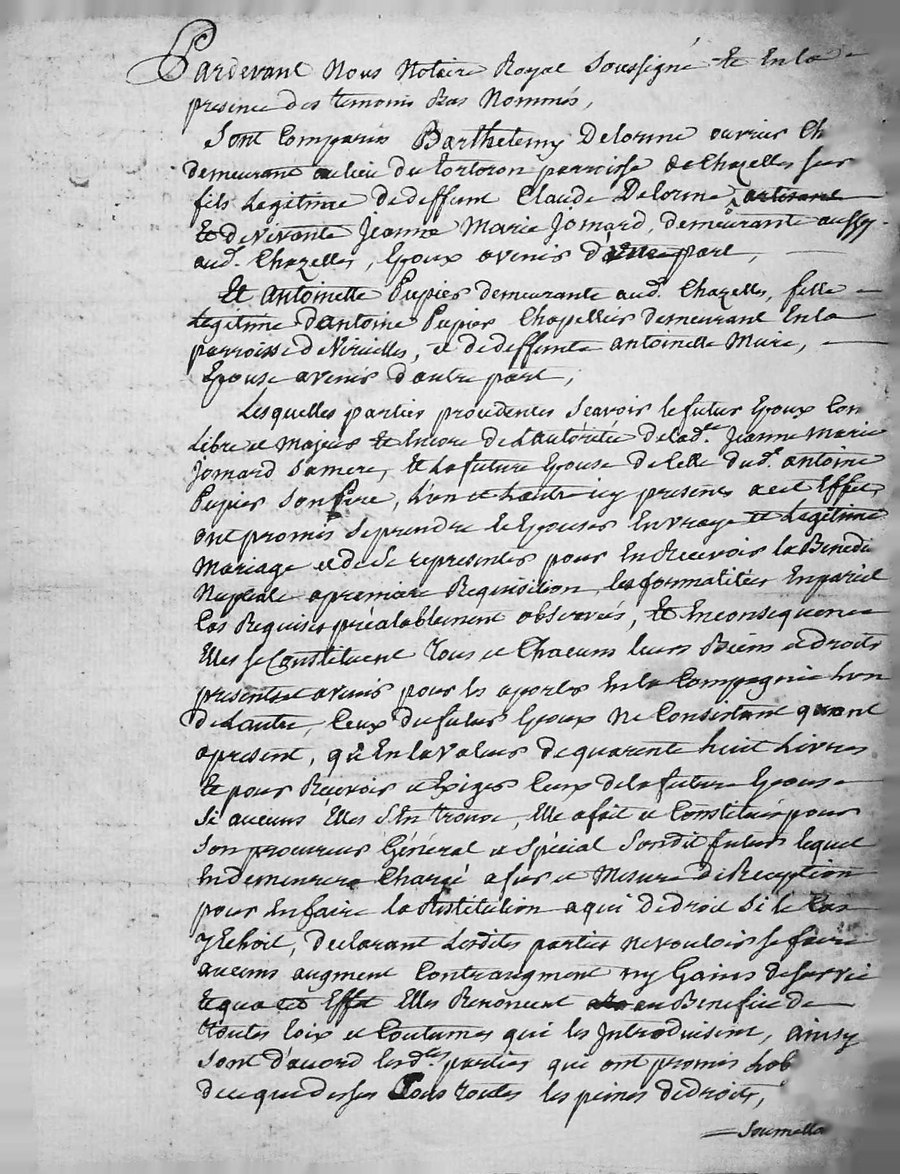 Pardevant Nous Notaire Royal Soussigné et En la
presence des temoins Bas Nommés,
Sont Comparus Barthelemy Delorme ouvrier Ch
demeurant au lieu du parroisse de Chazelles sur
fils Legitime de deffunt Claude Delorme, artisant
Et de Vivante Jeanne Marie Jomard, demeurante aussy
aud. Chazelles, Epoux avenir d'une part,
Et Antoinette Pupier demeurante aud. Chazelles, fille
Legitime d'antoine Pupier Chapellier demeurant En la
parroisse de Viricelles, et de deffunte antoinette Mure,
Epouse avenir d'autre part,
Lesquelles parties procedentes Scavoir le futur Epoux Com
Libre et Majeur et Encore de L'autoritée de lad.te Jeanne Marie
Jomard Sa mere, Et La future Epouse de Celle dud.t antoine
Pupier Son Pere, L'un et L'autre icy presents a cet Effet,
ont promis Se prendre et Epouser En vraye et Legitime
Mariage et de Se representer pour En Recevoir la Benedi
Nuptiale a premiere Requisition, les formalitées En pareil
Cas Requises préalablement observées, Et En consequence
Elles se Constituent Tous et Chacuns leurs Biens et Droits
presents et avenir pour les aporter En la Compagnie L'un
de L'autre, Ceux du futur Epoux Ne Consistant quant
apresent, qu'En la Valeur de quarente huit Livres
Et pour Recevoir et Exiger Ceux de la future Epouse
Si aucuns Elles S'En trouve, Elle a fait et Constitué pour
Son procureur Général et Spécial Sondit futur lequel
En demeurera Chargé a fur et Mesure de Reception
pour En faire la Restitution a qui De droit Si le Cas
y Echoit, Declarant Lesdites parties ne vouloir se faire
aucuns augment Contraugment ny Gains de Survie
Et qua cet Effet Elles Renoncent au Benefice de
Toutes loix et Coutumes qui les Introduisent, ainsy
Sont d'accord lesd.tes parties qui ont promis Lob
de ce que dessus Sous Toutes les peines de droits,